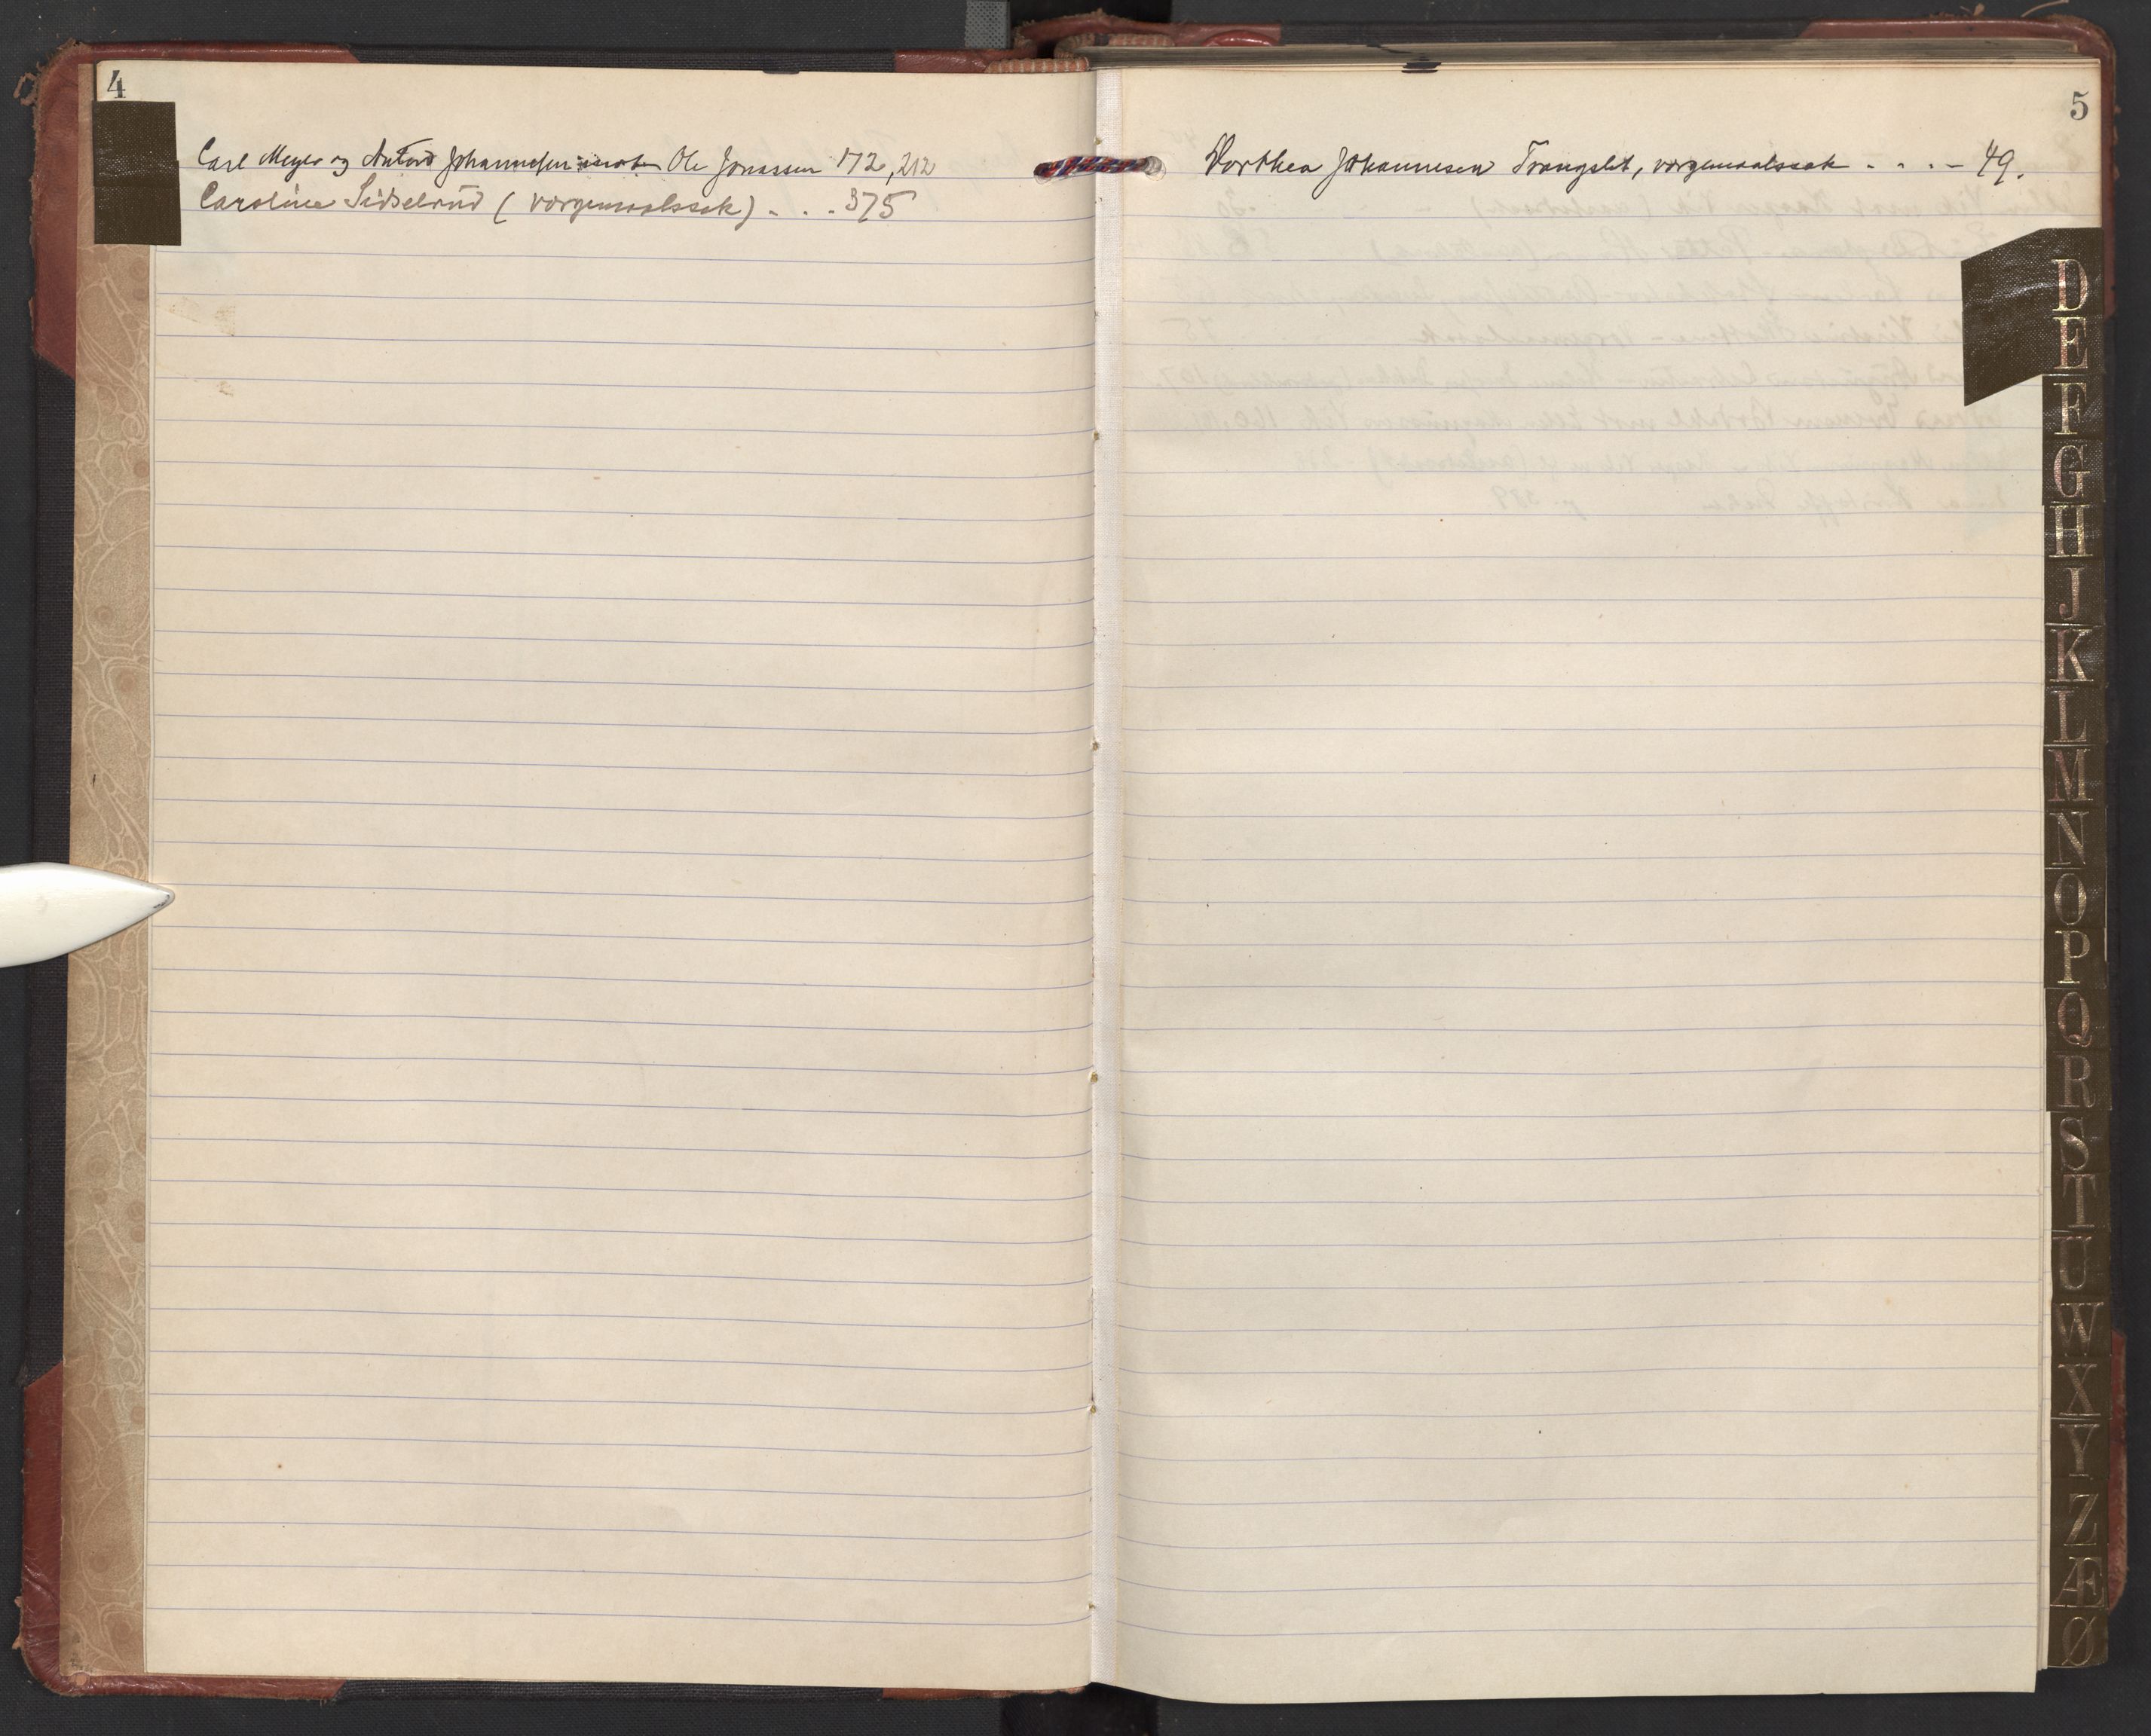 4
Carl Meyer og Antons Johannesen mot Ole Jonassen 172, 212
Caroline Sidselrud (vergemaalssak) . . . 375
5
Dorthea Johannesen Trangslet, vergemaalssak . . . - 49.
D
E
F
G
H
J
K
L
M
N
O
P
Q
R
S
T
U
W
X
Y
Z
Æ
Ø